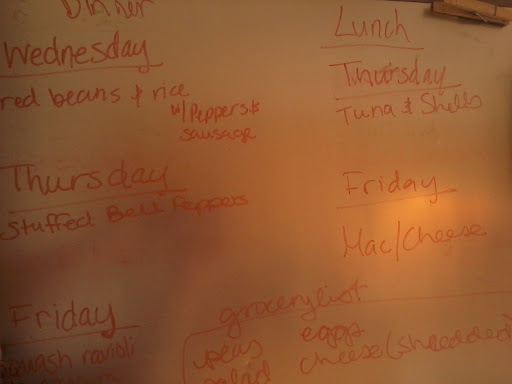 Dinner
Wednesday
red beans & rice
w/ Peppers &
sausage
Thursday
Stuffed Bell Peppers
Friday
squash ravioli
Lunch
Thursday
Tuna & Shells
Friday
Mac/Cheese
grocery list
peas
eggs
salad
cheese (shredded)